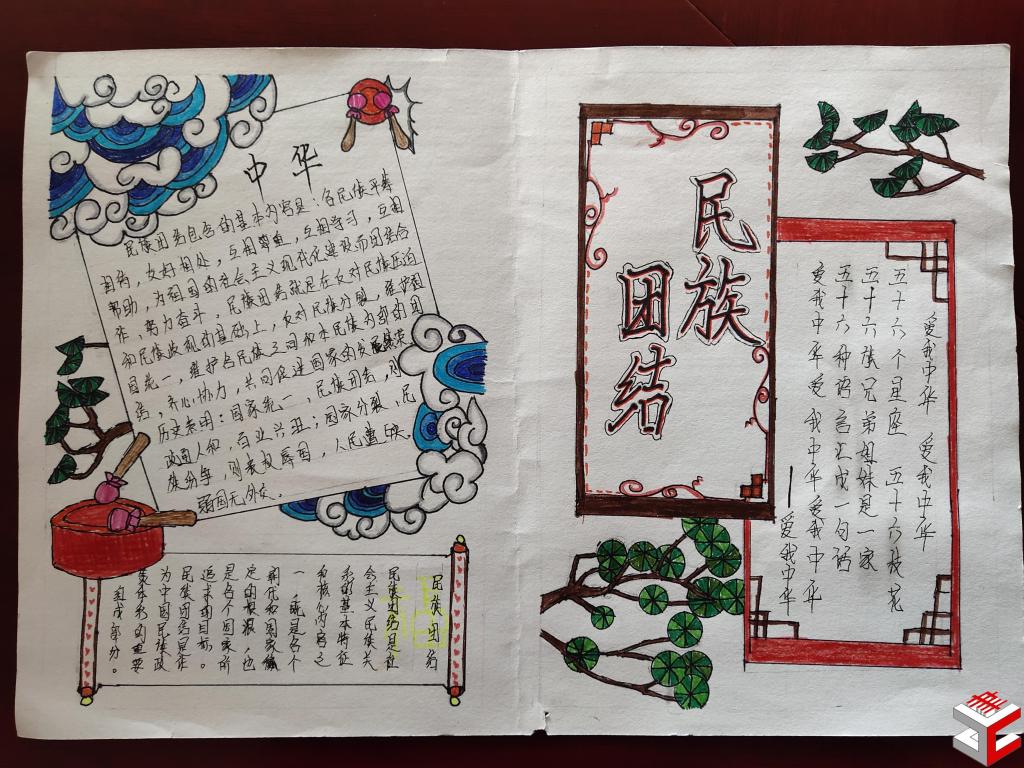 中华
民族团结包含的基本内容是：各民族平等
相待，友好相处，互相尊重，互相学习，互相
帮助，为祖国的社会主义现代化建设而团结合
作，努力奋斗，民族团结就是在反对民族压迫
和民族歧视的基础上，反对民族分裂，维护祖
国统一，维护各民族之间和本民族内部的团
结，齐心协力，共同促进国家的发展繁荣
历史表明：国家统一，民族团结，则
政通人和，百业兴旺；国家分裂、民
族纷争，则丧权辱国，人民遭殃
弱国无外交。
民族团结
民族团结是社
会主义民族关
系的基本特征
和核心内容之
一
是各个
国家所
追求的目标。
民族团结是作
为中国民族政
的重要
组成部分。
民族
团结
爱我中华 爱我中华
五十六个星座 五十六枝花
五十六族兄弟姐妹是一家
五十六种语言汇成一句话
爱我中华爱我中华爱我中华
——爱我中华